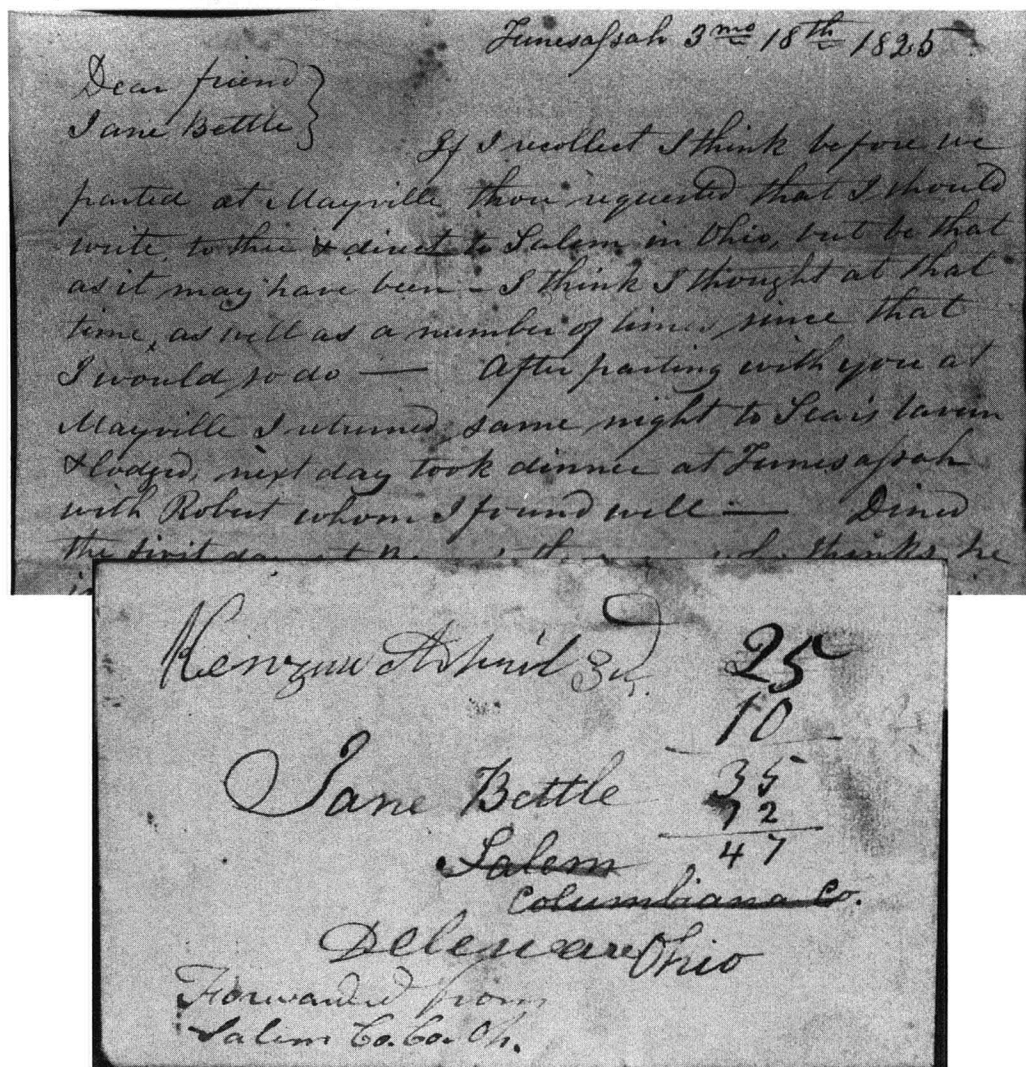 Tunesassah 3mo 18th 1825
Dear friend
Jane Bettle
If I recollect I think before we
parted at Mayville thou requested that I should
write to thee & direct to Salem in Ohio, but be that
as it may have been – I think I thought at that
time, as well as a number of times since that
I would so do — After parting with you at
Mayville I returned same night to tavern
& lodged, next day took dinner at Tunesassah
with Robert whom I found well — Dined
the first day thinks he
25
10
Jane Bettle 35
12
Salem 47
Columbiana Co.
Delaware Ohio
Forwarded from
Salem Co. Co. Oh.